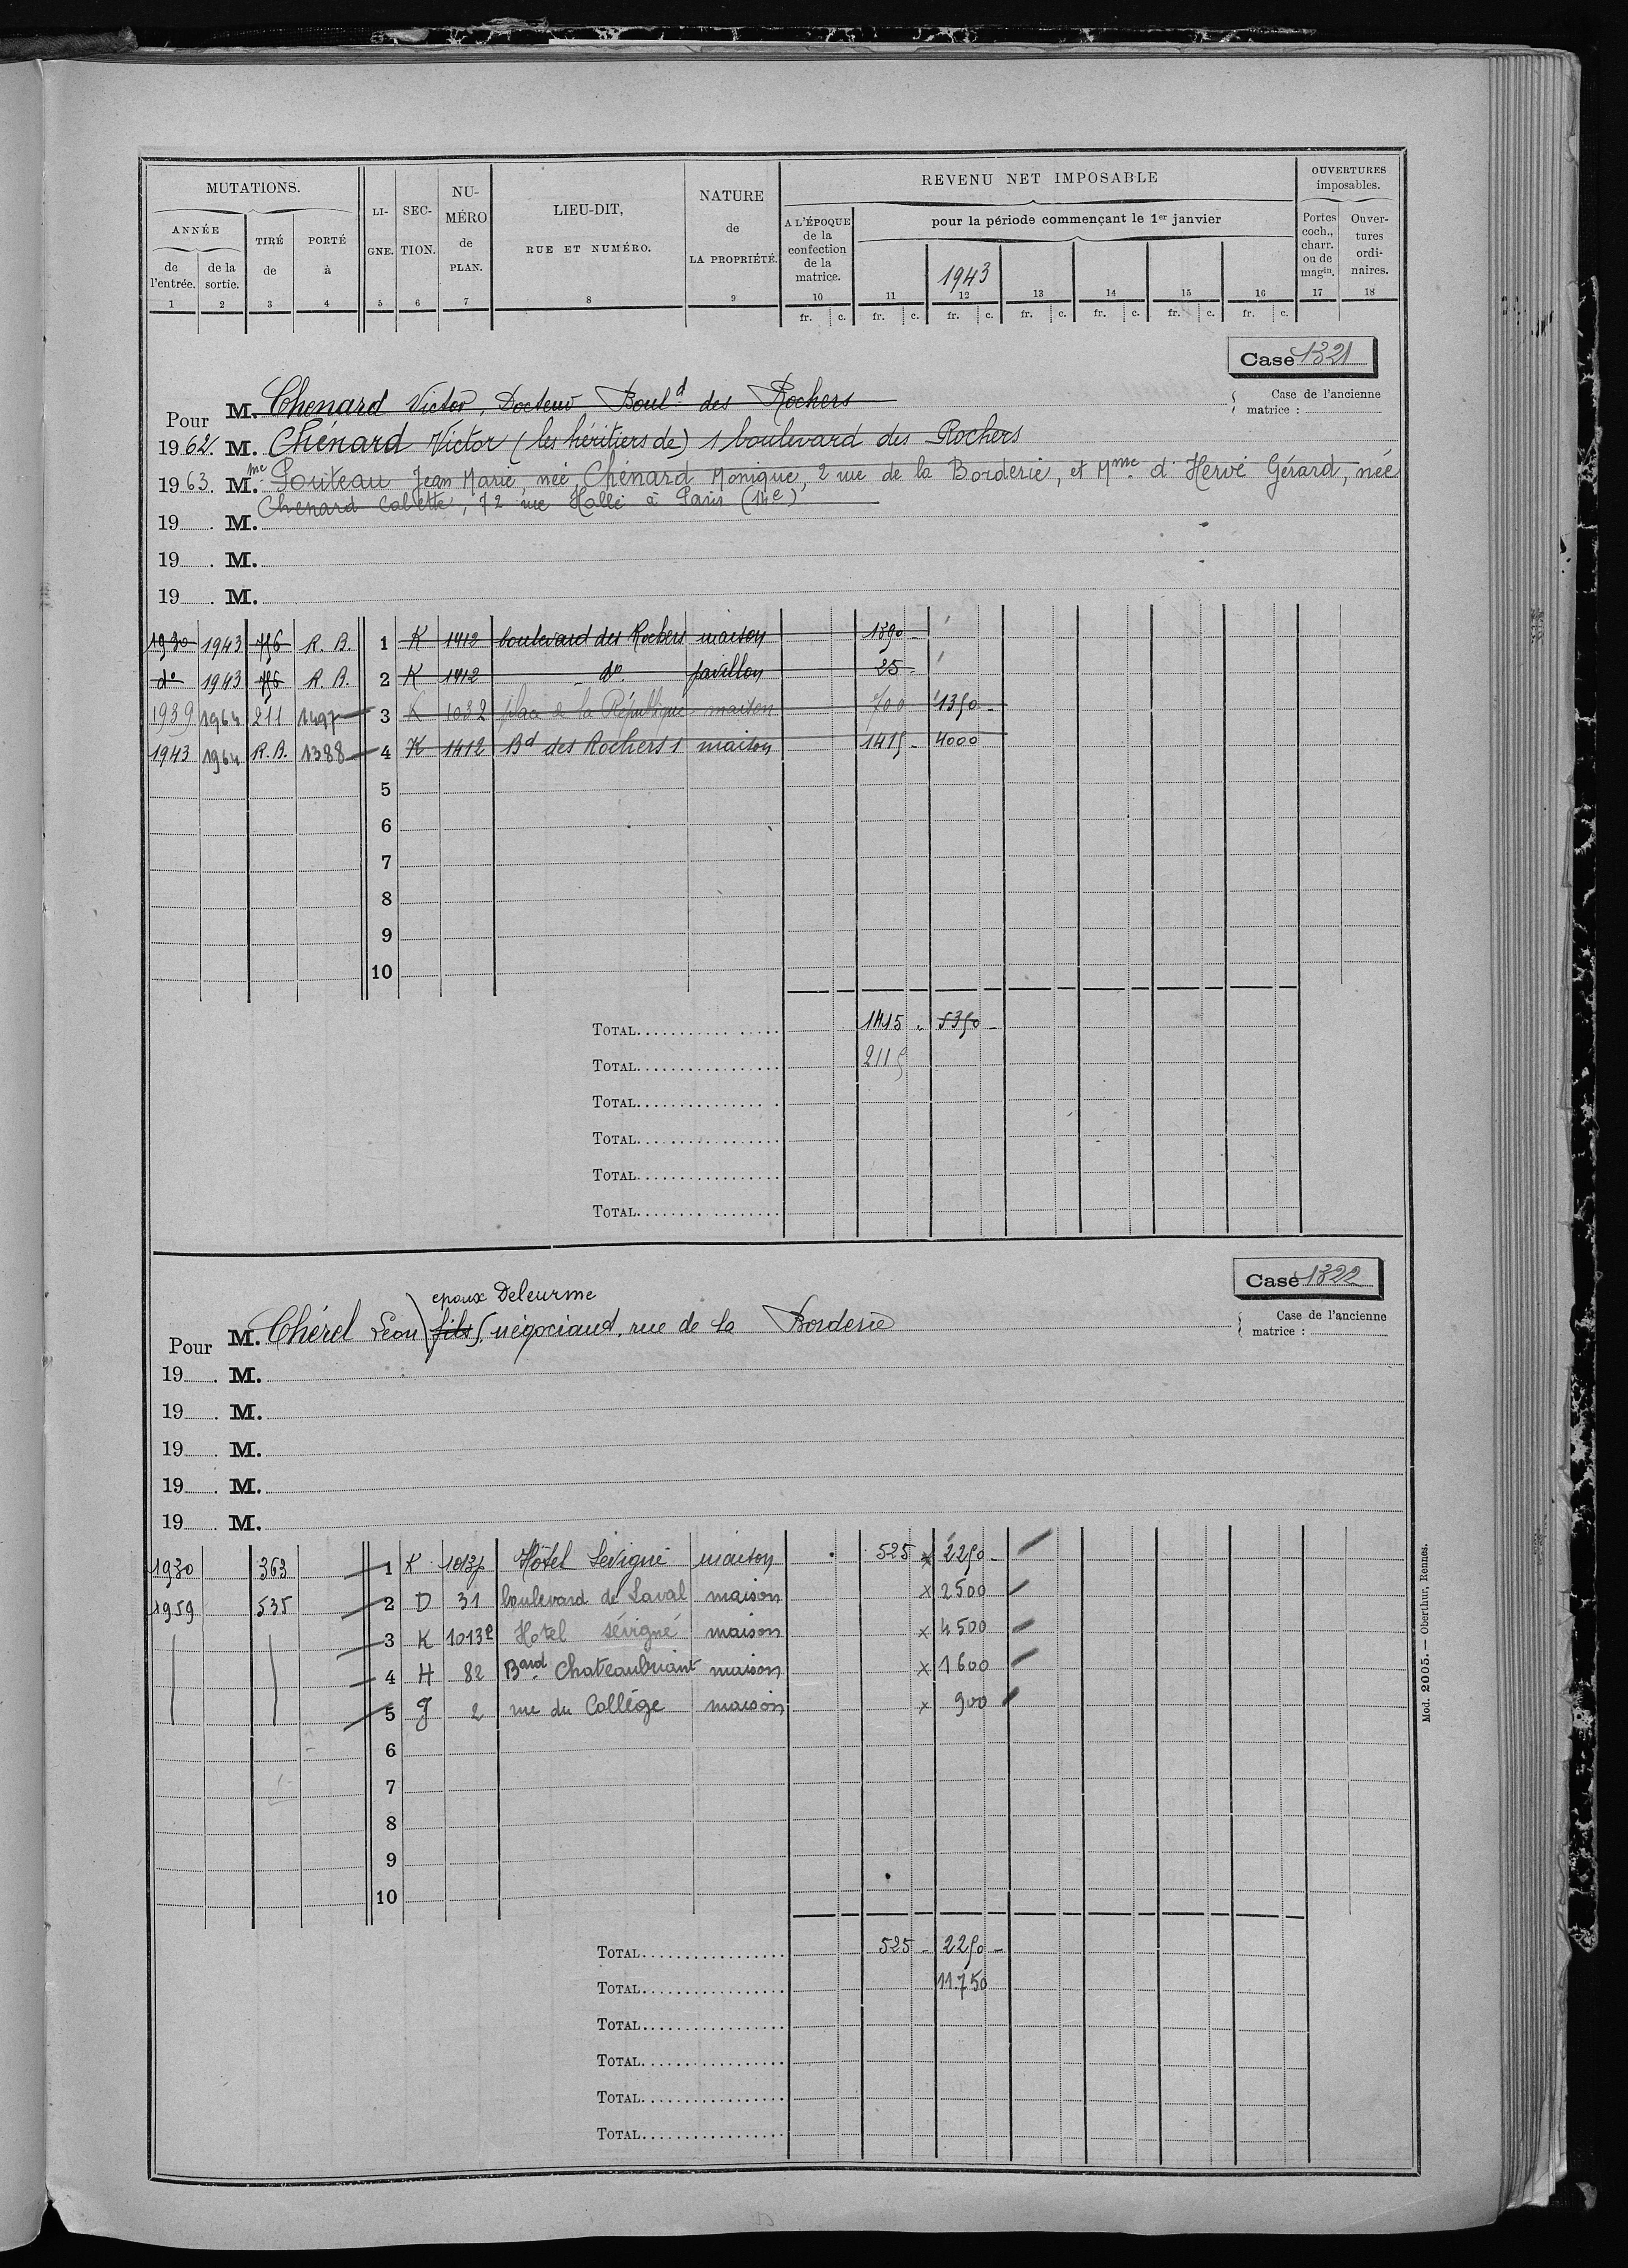 MUTATIONS.
ANNÉE
de l'entrée.
de la sortie.
TIRÉ de
PORTÉ à
LI-GNE.
SEC-TION.
NU-MÉRO de PLAN.
LIEU-DIT, RUE ET NUMÉRO.
NATURE de LA PROPRIÉTÉ.
REVENU NET IMPOSABLE
A L'ÉPOQUE de la confection de la matrice.
pour la période commençant le 1er janvier
1943
OUVERTURES imposables.
Portes coch., charr. ou de magin.
Ouver-tures ordi-naires.
1 2 3 4 5 6 7 8 9 10 11 12 13 14 15 16 17 18
fr. c. fr. c. fr. c. fr. c. fr. c. fr. c. fr. c.
Case 1321
Case de l'ancienne matrice :
Pour M. Chenard Victor, Docteur Bould des Rochers
1962. M. Chénard Victor (les héritiers de) 1 boulevard des Rochers
1963. Mme Pouteau Jean Marie, née Chénard Monique, 2 rue de la Borderie, et Mme d'Hervé Gérard, née
Chenard Colette, 72 rue Hallé à Paris (14e)
19 . M.
19 . M.
19 . M.
1930 1943 756 R. B. 1 K 1412 boulevard des Rochers maison 1390 -
do 1943 756 R. B. 2 K 1412 do pavillon 25 -
1939 1964 211 1497 3 K 1032 place de la République maison 700 1350 -
1943 1964 R. B. 1388 4 K 1412 Bd des Rochers 1 maison 1415 - 4000
5
6
7
8
9
10
Total 1415 - 5350 -
Total 2115
Total
Total
Total
Total
Case 1322
Case de l'ancienne matrice :
epoux Deleurme
Pour M. Chérel Léon fils, négociant, rue de la Borderie
19 . M.
19 . M.
19 . M.
19 . M.
19 . M.
1930 363 1 K 1013p Hôtel Sévigné maison 525 x 2250 -
1959 535 2 D 31 boulevard de Laval maison x 2500
3 K 1013p Hotel sévigné maison x 4500
4 H 82 Bard Chateaubriant maison x 1600
5 J 2 rue du Collége maison x 900
6
7
8
9
10
Total 525 - 2250 -
Total 11.750
Total
Total
Total
Total
Mod. 2005. — Oberthur, Rennes.